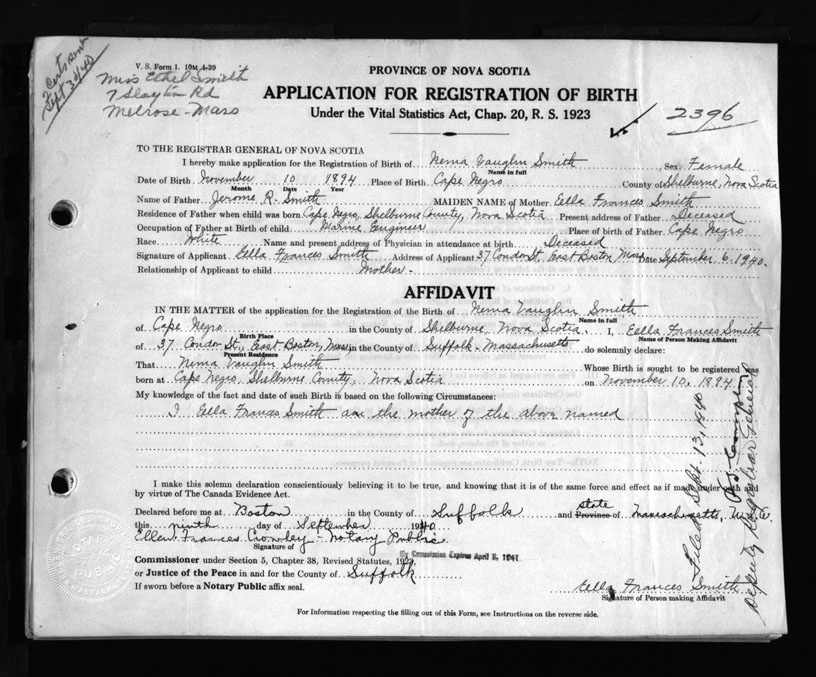 2 Certs sent
Sept 30/40
V. S. Form 1. 10M 1-39
Miss Ethel Smith
7 Slayton Rd
Melrose - Mass
PROVINCE OF NOVA SCOTIA
APPLICATION FOR REGISTRATION OF BIRTH
Under the Vital Statistics Act, Chap. 20, R. S. 1923
2396
TO THE REGISTRAR GENERAL OF NOVA SCOTIA
I hereby make application for the Registration of Birth of Nema Vaughn Smith, Sex Female
Name in full
Date of Birth November 10 1894 Place of Birth Cape Negro County of Shelburne, Nova Scotia
Month Date Year
Name of Father Jerome R. Smith MAIDEN NAME of Mother Eella Frances Smith
Residence of Father when child was born Cape Negro, Shelburne County, Nova Scotia Present address of Father Deceased
Occupation of Father at Birth of child Marine Engineer Place of birth of Father Cape Negro
Race White Name and present address of Physician in attendance at birth Deceased
Signature of Applicant Eella Frances Smith Address of Applicant 37 Condor St. East Boston Mass Date September 6, 1940.
Relationship of Applicant to child Mother -
AFFIDAVIT
IN THE MATTER of the application for the Registration of the Birth of Nema Vaughn Smith
Name in full
of Cape Negro in the County of Shelburne, Nova Scotia. I, Eella Frances Smith
Birth Place Name of Person Making Affidavit
of 37 Condor St., East Boston, Mass. in the County of Suffolk - Massachusetts do solemnly declare:
Present Residence
That Nema Vaughn Smith Whose Birth is sought to be registered was
born at Cape Negro, Shelburne County, Nova Scotia on November 10, 1894.
My knowledge of the fact and date of such Birth is based on the following Circumstances:
I Eella Frances Smith am the mother of the above named
I make this solemn declaration conscientiously believing it to be true, and knowing that it is of the same force and effect as if made under oath and
by virtue of The Canada Evidence Act.
Declared before me at Boston in the County of Suffolk and state Province of Massachusetts, U.S.A.
this ninth day of September 1940
Ellen Frances Crowley - Notary Public
Signature of
My Commission Expires April 3, 1941.
Commissioner under Section 5, Chapter 38, Revised Statutes, 1923,
or Justice of the Peace in and for the County of Suffolk
If sworn before a Notary Public affix seal.
Eella Frances Smith
Signature of Person making Affidavit
For Information respecting the filling out of this Form, see Instructions on the reverse side.
Filed Sept. 13, 1940
Deputy Registrar General